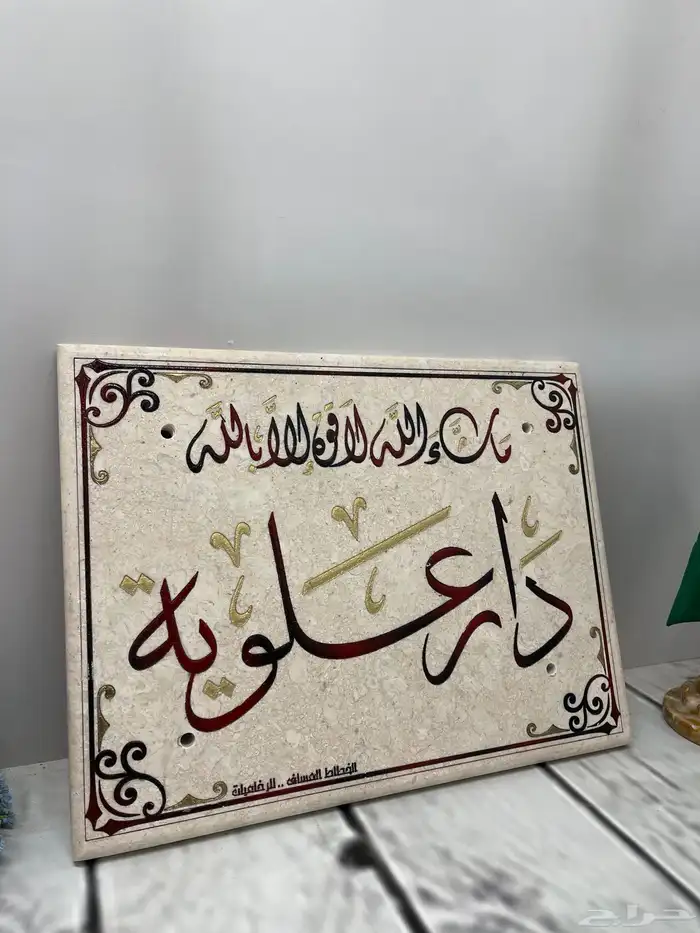 ما شاء الله لا قوة إلا بالله
دار علوية
الخطاط العساف .. للرخاميات
حراج